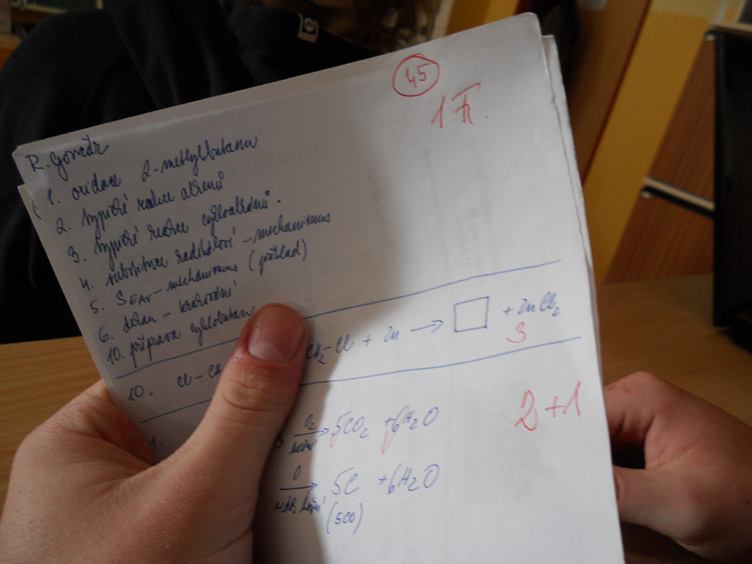 45
1 Fr.
R. Gončár
1. oxidace 2-methylbutanu
2. typické reakce alkenů
3. typické reakce cykloalkanů.
4. substituce radikálová - mechanismus
5. SEAr - mechanismus (příklad)
6. - krakování
10. příprava cyklobutanu
10. Cl-CH CH₂-Cl + Zn → □ + ZnCl₂
3
1. O₂ → 5CO₂ + 6H₂O
2+1
O → 5C + 6H₂O
(5CO)